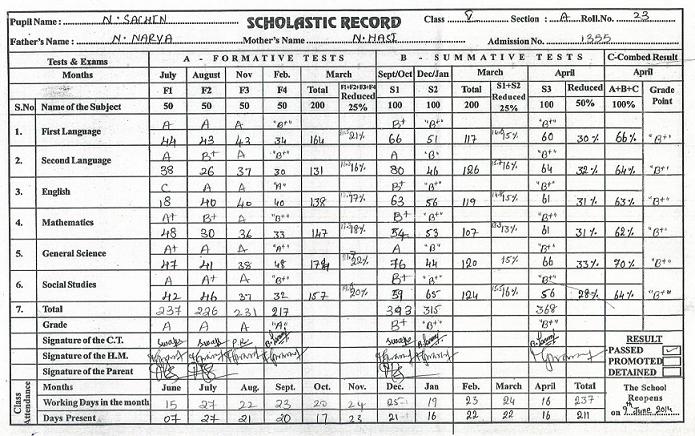 Pupil Name : N. SACHIN SCHOLASTIC RECORD Class 8 Section : A Roll.No. 23
Father's Name N. NARVA Mother's Name N. HASI Admission No. 1355
Tests & Exams A - FORMATIVE TESTS B - SUMMATIVE TESTS C-Combed Result
Months July August Nov Feb. March Sept/Oct Dec/Jan March April April
F1 F2 F3 F4 Total F1+F2+F3+F4 Reduced S1 S2 Total S1+S2 Reduced S3 Reduced A+B+C Grade Point
S.No Name of the Subject 50 50 50 50 200 25% 100 100 200 25% 100 50% 100%
A A A "B+" B+ "B+" "B+"
1. First Language 44 43 43 34 164 21% 66 51 117 15% 60 30% 66% "B+"
A B+ A "B+" A "B" "B+"
2. Second Language 38 26 37 30 131 16% 80 46 126 16% 64 32% 64% "B+"
C A A "A" B+ "B+" "B+"
3. English 18 40 40 40 138 17% 63 56 119 15% 61 31% 63% "B+"
A+ B+ A "B+" B+ "B+" "B+"
4. Mathematics 48 30 36 33 147 18% 54 53 107 13% 61 31% 62% "B+"
A+ A A "A+" A "B" "B+"
5. General Science 47 41 38 48 174 22% 76 44 120 15% 66 33% 70% "B+"
A A+ A "B+" B+ "B+" "B+"
6. Social Studies 42 46 37 32 157 20% 59 65 124 16% 56 28% 64% "B+"
7. Total 237 226 231 217 393 315 368
Grade A A A "A" B+ "B+" "B+"
Signature of the C.T. RESULT
Signature of the H.M. PASSED
PROMOTED
Signature of the Parent DETAINED
Class Attendance Months June July Aug. Sept. Oct. Nov. Dec. Jan Feb. March April Total The School
Working Days in the month 15 27 22 23 20 24 25 19 23 24 16 237 Reopens
Days Present 07 27 21 20 17 23 21 16 22 22 16 211 on 9th June 2014